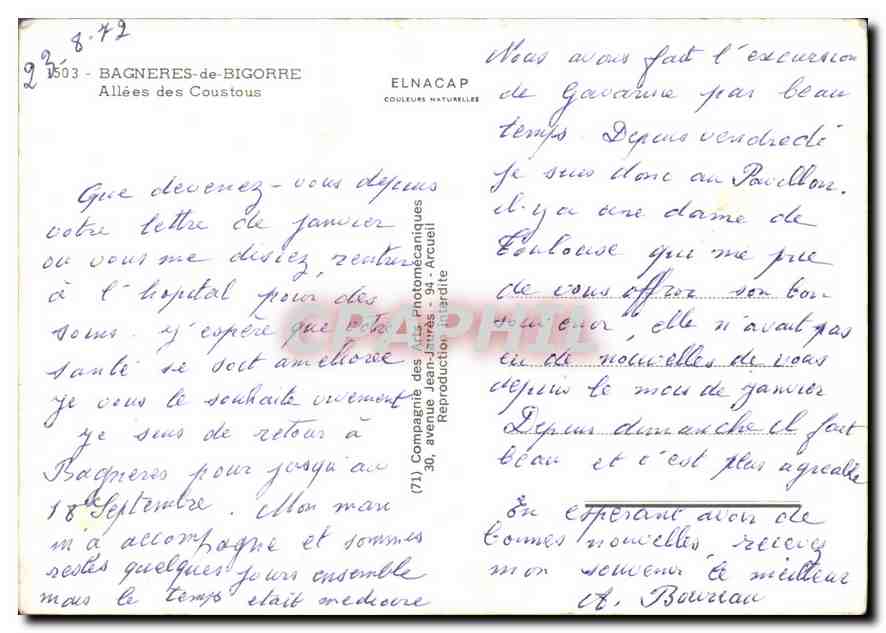 23 8-72
1503 - BAGNERES-de-BIGORRE
Allées des Coustous
ELNACAP
COULEURS NATURELLES
Que devenez-vous depuis
votre lettre de janvier
ou vous me disiez, rentrer
à l'hopital pour des
soins. J'espère que votre
santé se soit améliorée
Je vous le souhaite vivement
Je suis de retour à
Bagneres pour jusqu'au
18 Septembre. Mon mari
m'a accompagné et sommes
restés quelques jours ensemble
mais le temps etait mediocre
(71) Compagnie des Arts Photomécaniques
30, avenue Jean-Jaurès - 94 - Arcueil
Reproduction interdite
CPAPHIL
Nous avons fait l'excursion
de Gavarnie par beau
temps. Depuis vendredi
je suis donc au Pavillon.
il y a une dame de
Toulouse qui me prie
de vous offrir son bon
souvenir, elle n'avait pas
eu de nouvelles de vous
depuis le mois de janvier
Depuis dimanche il fait
beau et c'est plus agreable
En espérant avoir de
bonnes nouvelles, recevez
mon souvenir le meilleur
A. Boureau